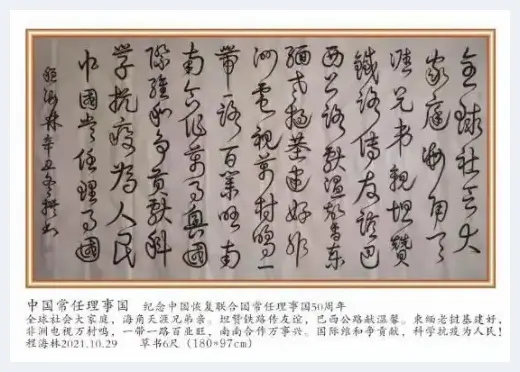 全球社会大
家庭海角天
涯兄弟親坦贊
鐵路傳友誼巴
西公路獻溫馨柬
緬老撾基建好非
洲電視萬村鳴一
帶一路百業旺南
南合作萬事興國
際維和争貢獻科
學抗疫為人民
中國常任理事國
程海林辛丑冬撰书
中国常任理事国 纪念中国恢复联合国常任理事国50周年
全球社会大家庭，海角天涯兄弟亲。坦赞铁路传友谊，巴西公路献温馨。柬缅老挝基建好，
非洲电视万村鸣，一带一路百业旺，南南合作万事兴。国际维和争贡献，科学抗疫为人民！
程海林2021.10.29 草书6尺（180*97cm）